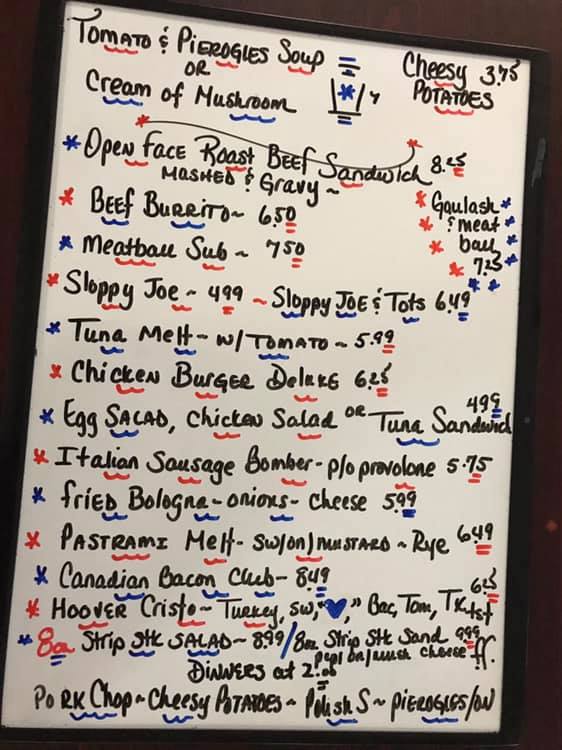 Tomato & Pierogies Soup
OR
Cream of Mushroom
Cheesy 3.75
Potatoes
Open Face Roast Beef Sandwich 8.25
Mashed & Gravy ~
Beef Burrito ~ 6.50
Goulash
& meat
ball
7.25
Meatball Sub ~ 7.50
Sloppy Joe ~ 4.99 ~ Sloppy Joe & Tots 6.49
Tuna Melt - w/ Tomato ~ 5.99
Chicken Burger Deluxe 6.25
Egg Salad, Chicken Salad or Tuna Sandwich 4.99
Italian Sausage Bomber - p/o provolone 5.75
Fried Bologna - onions - cheese 5.99
Pastrami Melt - sw/on/mustard ~ Rye 6.49
Canadian Bacon Club - 8.49
Hoover Cristo ~ Turkey, sw, "💙," Bac, Tom, TX tst 6.25
8oz Strip Stk Salad ~ 8.99 / 8oz Strip Stk Sand 9.99
pep/on/mush cheese ff.
Dinners at 2:00
Pork Chop ~ Cheesy Potatoes ~ Polish S ~ Pierogies/on